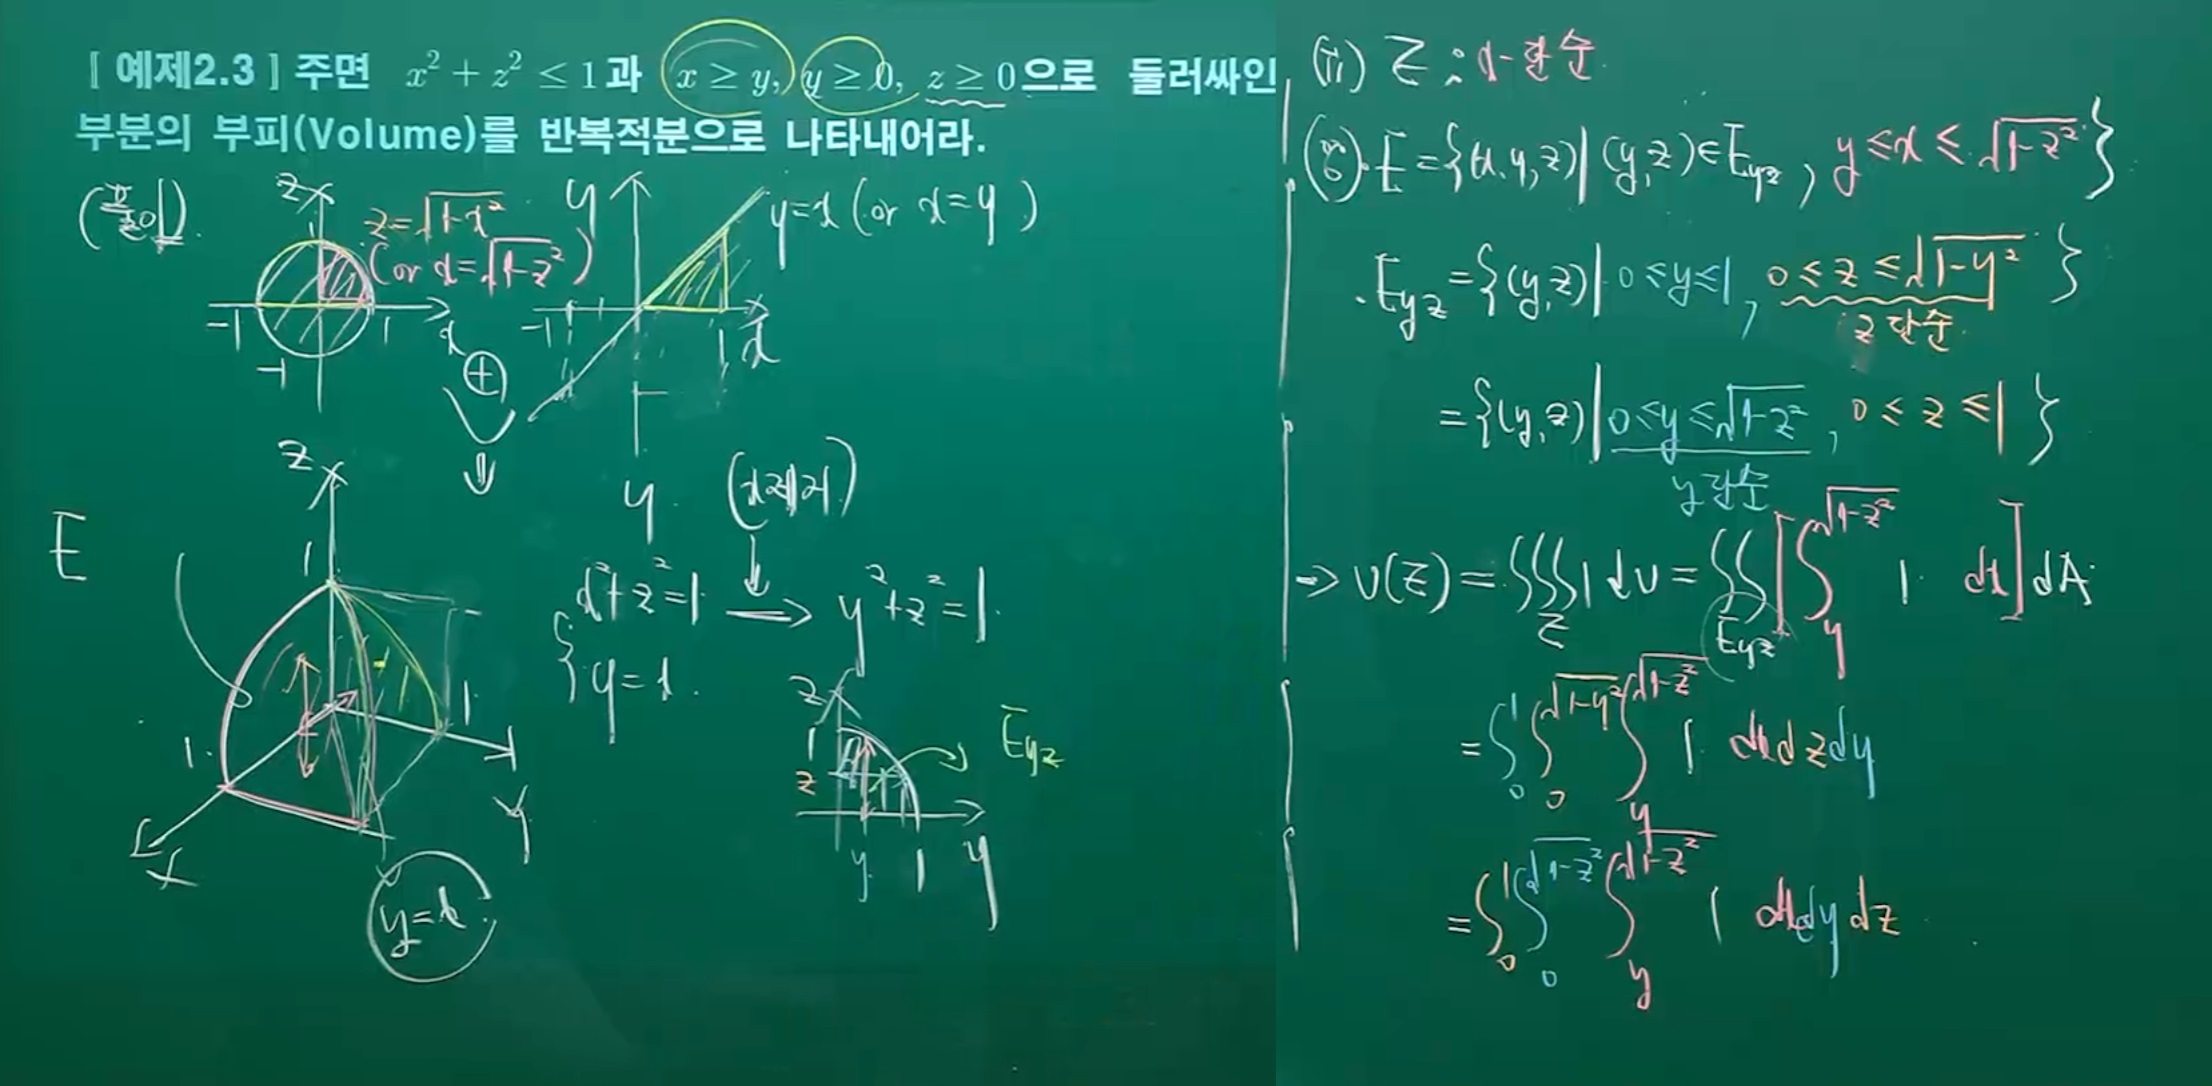 [ 예제2.3 ] 주면 x² + z² ≤ 1과 x ≥ y, y ≥ 0, z ≥ 0으로 둘러싸인
부분의 부피(Volume)를 반복적분으로 나타내어라.
(풀이).
z
z=√1-x²
(or x=√1-z²)
1
-1
1
x
-1
y
y=x (or x=y)
-1
1
x
⊕
⇓
z
E
1
1
1
x
y
y=x
y
x²+z²=1
y=x.
→ y²+z²=1.
z
1
z
y
1
y
Eyz
(ii) E : x-단순
E={(x,y,z)| (y,z)∈Eyz, y≤x≤√1-z² }
Eyz={(y,z)| 0≤y≤1, 0≤z≤√1-y² }
z단순
={(y,z)| 0≤y≤√1-z², 0≤z≤1 }
y단순
→ V(E) = ∭E 1 dV = ∬Eyz [∫y^√1-z² 1 dx] dA
= ∫0^1 ∫0^√1-y² ∫y^√1-z² 1 dx dz dy
= ∫0^1 ∫0^√1-z² ∫y^√1-z² 1 dx dy dz